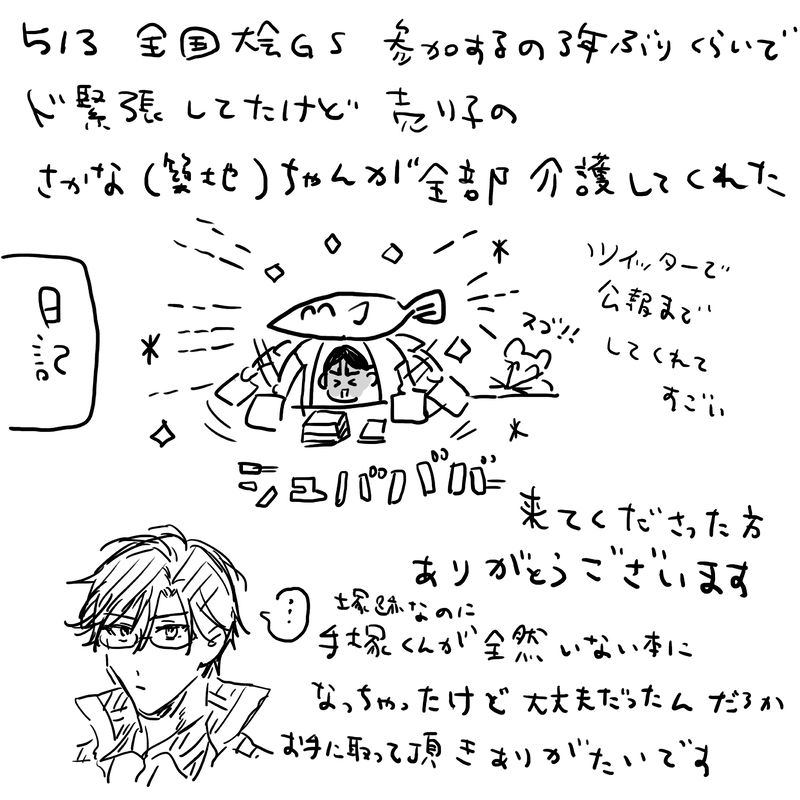 513 全国大会GS 参加するの3年ぶりくらいで
ド緊張してたけど 売り子の
さかな(築地)ちゃんが全部介護してくれた
日記
ツイッターで
公報まで
してくれて
すごい
スゴ!!
シュババババ
来てくださった方
ありがとうございます
…
塚跡なのに
手塚くんが全然いない本に
なっちゃったけど大丈夫だったんだろか
お手に取って頂きありがたいです